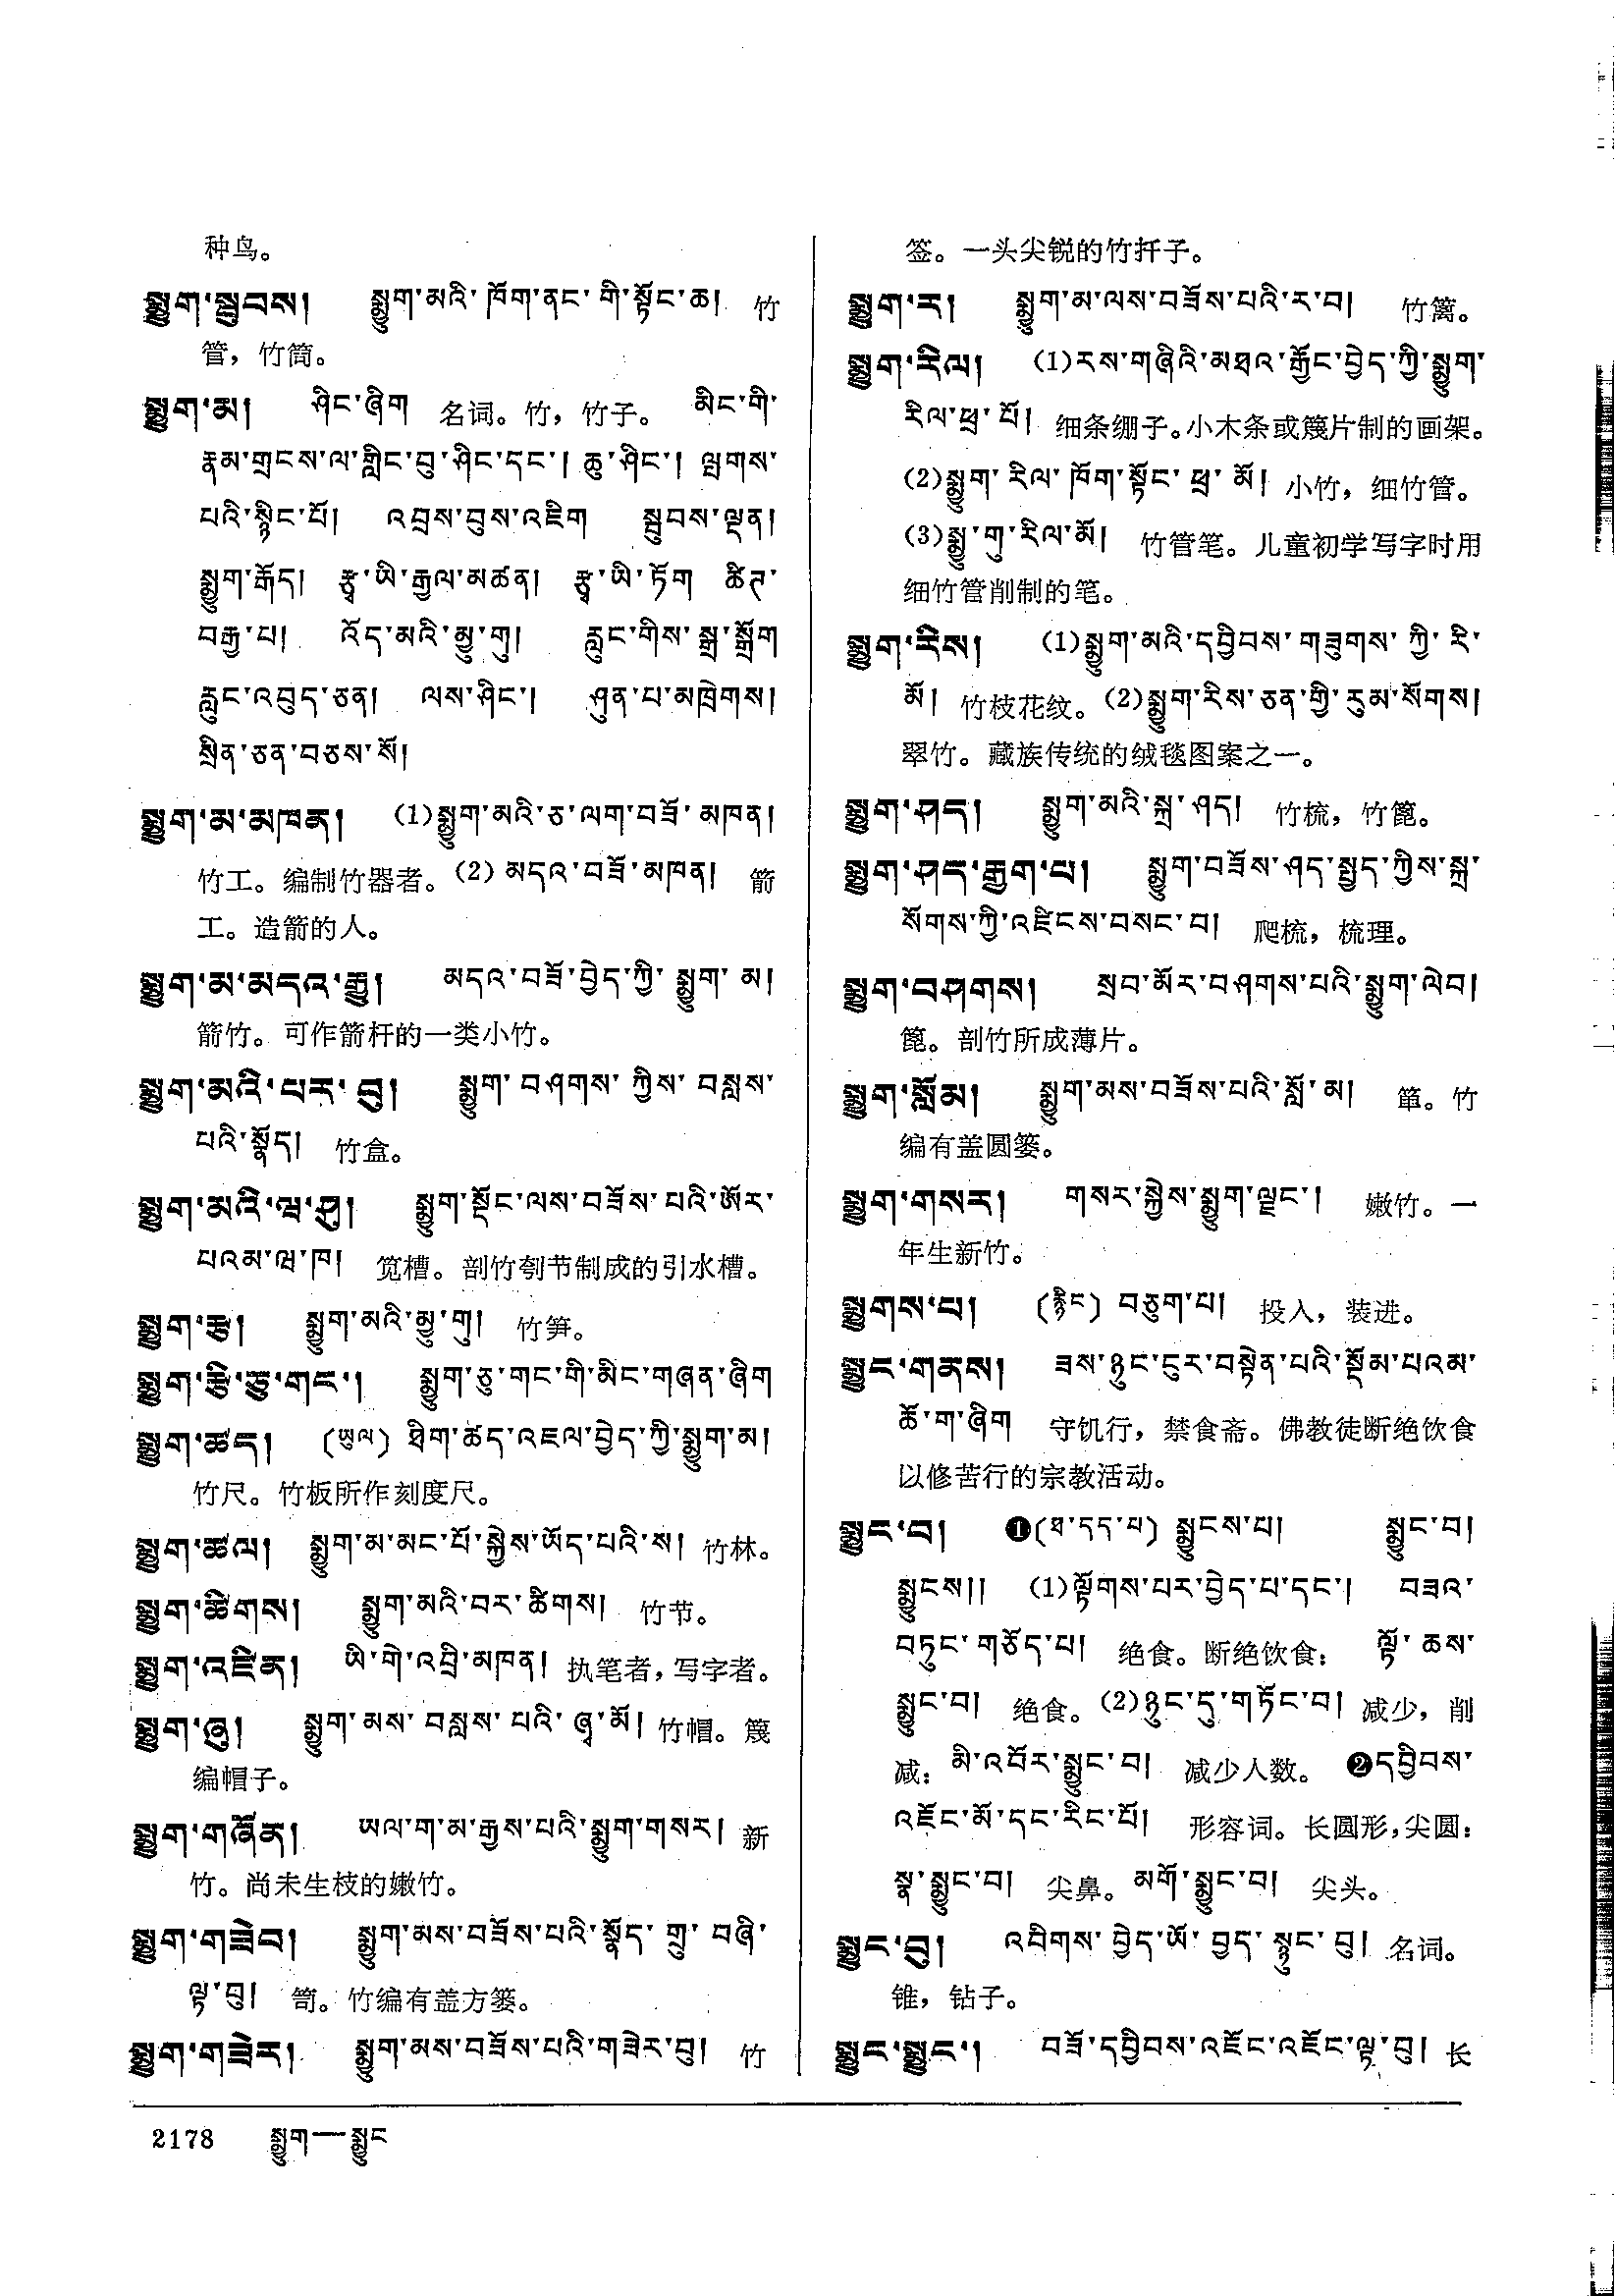 种鸟。
སྨྱུག་སྦུབས། སྨྱུག་མའི་ཁོག་ནང་གི་སྟོང་ཆ། 竹
管，竹筒。
སྨྱུག་མ། ཤིང་ཞིག 名词。竹，竹子。 མིང་གི་
རྣམ་གྲངས་ལ་གླིང་བུ་ཤིང་དང་། ཆུ་ཤིང་། ལྤགས་
པའི་སྙིང་པོ། འབྲས་བུས་འཇིག སྦུབས་ལྡན།
སྨྱུག་རྒོད། རྩྭ་ཡི་རྒྱལ་མཚན། རྩྭ་ཡི་ཏོག ཚིཊ་
བརྒྱ་པ། འོད་མའི་མྱུ་གུ། རླུང་གིས་སྒྲ་སྒྲོག
རླུང་འབུད་ཅན། ལས་ཤིང་། ཤུན་པ་མཁྲེགས།
སྲིན་ཅན་བཅས་སོ།
སྨྱུག་མ་མཁན། (1)སྨྱུག་མའི་ཅ་ལག་བཟོ་མཁན།
竹工。编制竹器者。(2) མདའ་བཟོ་མཁན། 箭
工。造箭的人。
སྨྱུག་མ་མདའ་རྒྱུ། མདའ་བཟོ་བྱེད་ཀྱི་སྨྱུག་མ།
箭竹。可作箭杆的一类小竹。
སྨྱུག་མའི་པར་བུ། སྨྱུག་བཤགས་ཀྱིས་བསླས་
པའི་སྣོད། 竹盒。
སྨྱུག་མའི་ཝ་ཤུ། སྨྱུག་སྡོང་ལས་བཟོས་པའི་ཨོར་
པའམ་ཝ་ཁ། 笕槽。剖竹刳节制成的引水槽。
སྨྱུག་རྩུ། སྨྱུག་མའི་མྱུ་གུ། 竹笋。
སྨྱུག་རྩི་ཅུ་གང་། སྨྱུག་ཅུ་གང་གི་མིང་གཞན་ཞིག
སྨྱུག་ཚད། (ཡུལ) ཐིག་ཚད་འཇལ་བྱེད་ཀྱི་སྨྱུག་མ།
竹尺。竹板所作刻度尺。
སྨྱུག་ཚལ། སྨྱུག་མ་མང་པོ་སྐྱེས་ཡོད་པའི་ས། 竹林。
སྨྱུག་ཚིགས། སྨྱུག་མའི་བར་ཚིགས། 竹节。
སྨྱུག་འཛིན། ཡི་གེ་འབྲི་མཁན། 执笔者，写字者。
སྨྱུག་ཞུ། སྨྱུག་མས་བསླས་པའི་ཞྭ་མོ། 竹帽。篾
编帽子。
སྨྱུག་གཞོན། ཡལ་ག་མ་རྒྱས་པའི་སྨྱུག་གསར། 新
竹。尚未生枝的嫩竹。
སྨྱུག་གཟེབ། སྨྱུག་མས་བཟོས་པའི་སྣོད་གྲུ་བཞི་
ལྟ་བུ། 笥。竹编有盖方篓。
སྨྱུག་གཟེར། སྨྱུག་མས་བཟོས་པའི་གཟེར་བུ། 竹
签。一头尖锐的竹扦子。
སྨྱུག་ར། སྨྱུག་མ་ལས་བཟོས་པའི་ར་བ། 竹篱。
སྨྱུག་རིལ། (1)རས་གཞིའི་མཐའ་རྒྱོང་བྱེད་ཀྱི་སྨྱུག་
རིལ་ཕྲ་པོ། 细条绷子。小木条或篾片制的画架。
(2)སྨྱུག་རིལ་ཁོག་སྟོང་ཕྲ་མོ། 小竹，细竹管。
(3)སྨྱུ་གུ་རིལ་མོ། 竹管笔。儿童初学写字时用
细竹管削制的笔。
སྨྱུག་རིས། (1)སྨྱུག་མའི་དབྱིབས་གཟུགས་ཀྱི་རི་
མོ། 竹枝花纹。(2)སྨྱུག་རིས་ཅན་གྱི་རུམ་སོགས།
翠竹。藏族传统的绒毯图案之一。
སྨྱུག་ཤད། སྨྱུག་མའི་སྐྲ་ཤད། 竹梳，竹篦。
སྨྱུག་ཤད་རྒྱག་པ། སྨྱུག་བཟོས་ཤད་སྤྱད་ཀྱིས་སྐྲ་
སོགས་ཀྱི་འཛིངས་བསང་བ། 爬梳，梳理。
སྨྱུག་བཤགས། སྲབ་མོར་བཤགས་པའི་སྨྱུག་ལེབ།
篾。剖竹所成薄片。
སྨྱུག་སློམ། སྨྱུག་མས་བཟོས་པའི་སློ་མ། 箪。竹
编有盖圆篓。
སྨྱུག་གསར། གསར་སྐྱེས་སྨྱུག་ལྗང་། 嫩竹。一
年生新竹。
སྨྱུགས་པ། (རྙིང) བཅུག་པ། 投入，装进。
སྨྱུང་གནས། ཟས་ཉུང་ངུར་བསྟེན་པའི་སྡོམ་པའམ་
ཆོ་ག་ཞིག 守饥行，禁食斋。佛教徒断绝饮食
以修苦行的宗教活动。
སྨྱུང་བ། ❶(ཐ་དད་པ) སྨྱུངས་པ། སྨྱུང་བ།
སྨྱུངས།། (1)ལྟོགས་པར་བྱེད་པ་དང་། བཟའ་
བཏུང་གཅོད་པ། 绝食。断绝饮食： ལྟོ་ཆས་
སྨྱུང་བ། 绝食。(2)ཉུང་དུ་གཏོང་བ། 减少，削
减： མི་འབོར་སྨྱུང་བ། 减少人数。 ❷དབྱིབས་
འཇོང་མོ་དང་རིང་པོ། 形容词。长圆形，尖圆：
སྣ་སྨྱུང་བ། 尖鼻。 མགོ་སྨྱུང་བ། 尖头。
སྨྱུང་བུ། འབིགས་བྱེད་ཡོ་བྱད་སྙུང་བུ། 名词。
锥，钻子。
སྨྱུང་སྨྱུང་། བཟོ་དབྱིབས་འཇོང་འཇོང་ལྟ་བུ། 长
2178 སྨྱུག—སྨྱུང